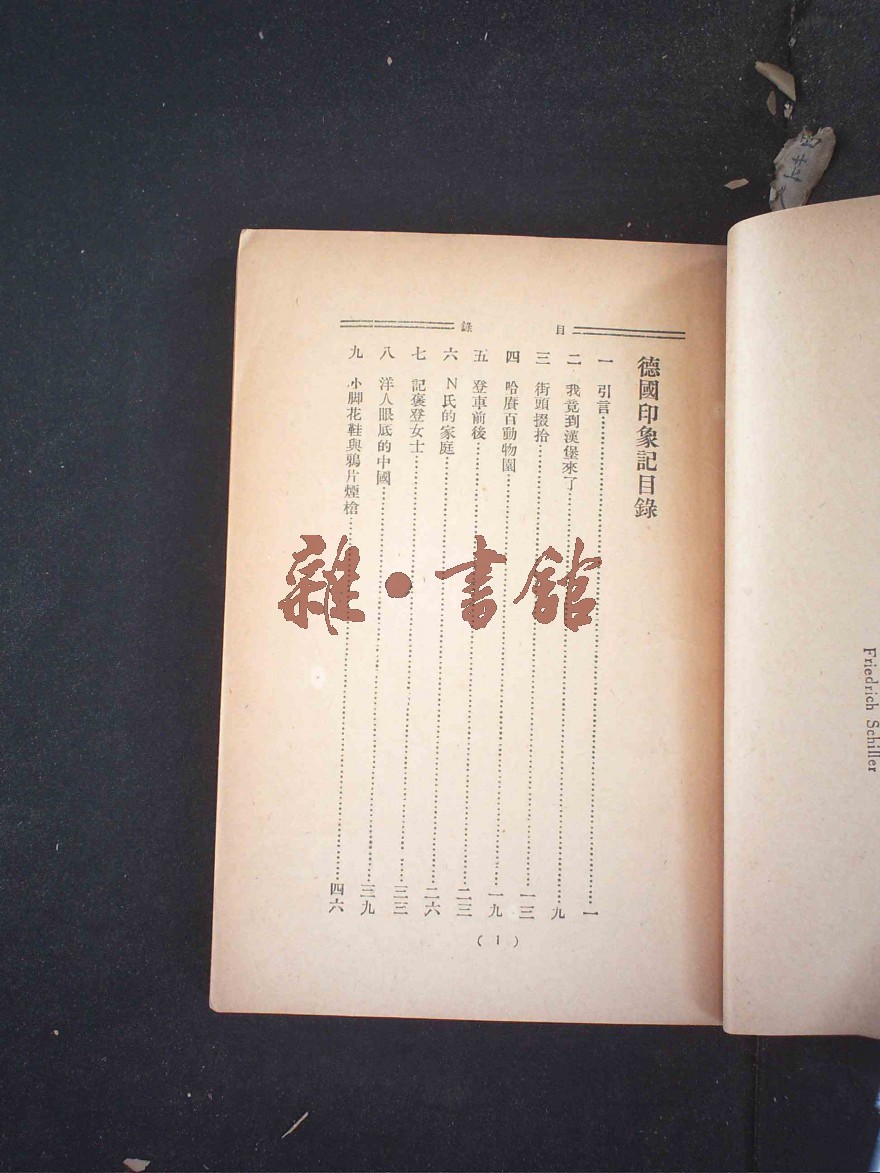 目錄
德國印象記目錄
一 引言 一
二 我竟到漢堡來了 九
三 街頭掇拾 一三
四 哈賡百動物園 一九
五 登車前後 二三
六 N氏的家庭 二六
七 記褒登女士 三三
八 洋人眼底的中國 三九
九 小脚花鞋與鴉片煙槍 四六
( 1 )
雜·書館
Friedrich Schiller